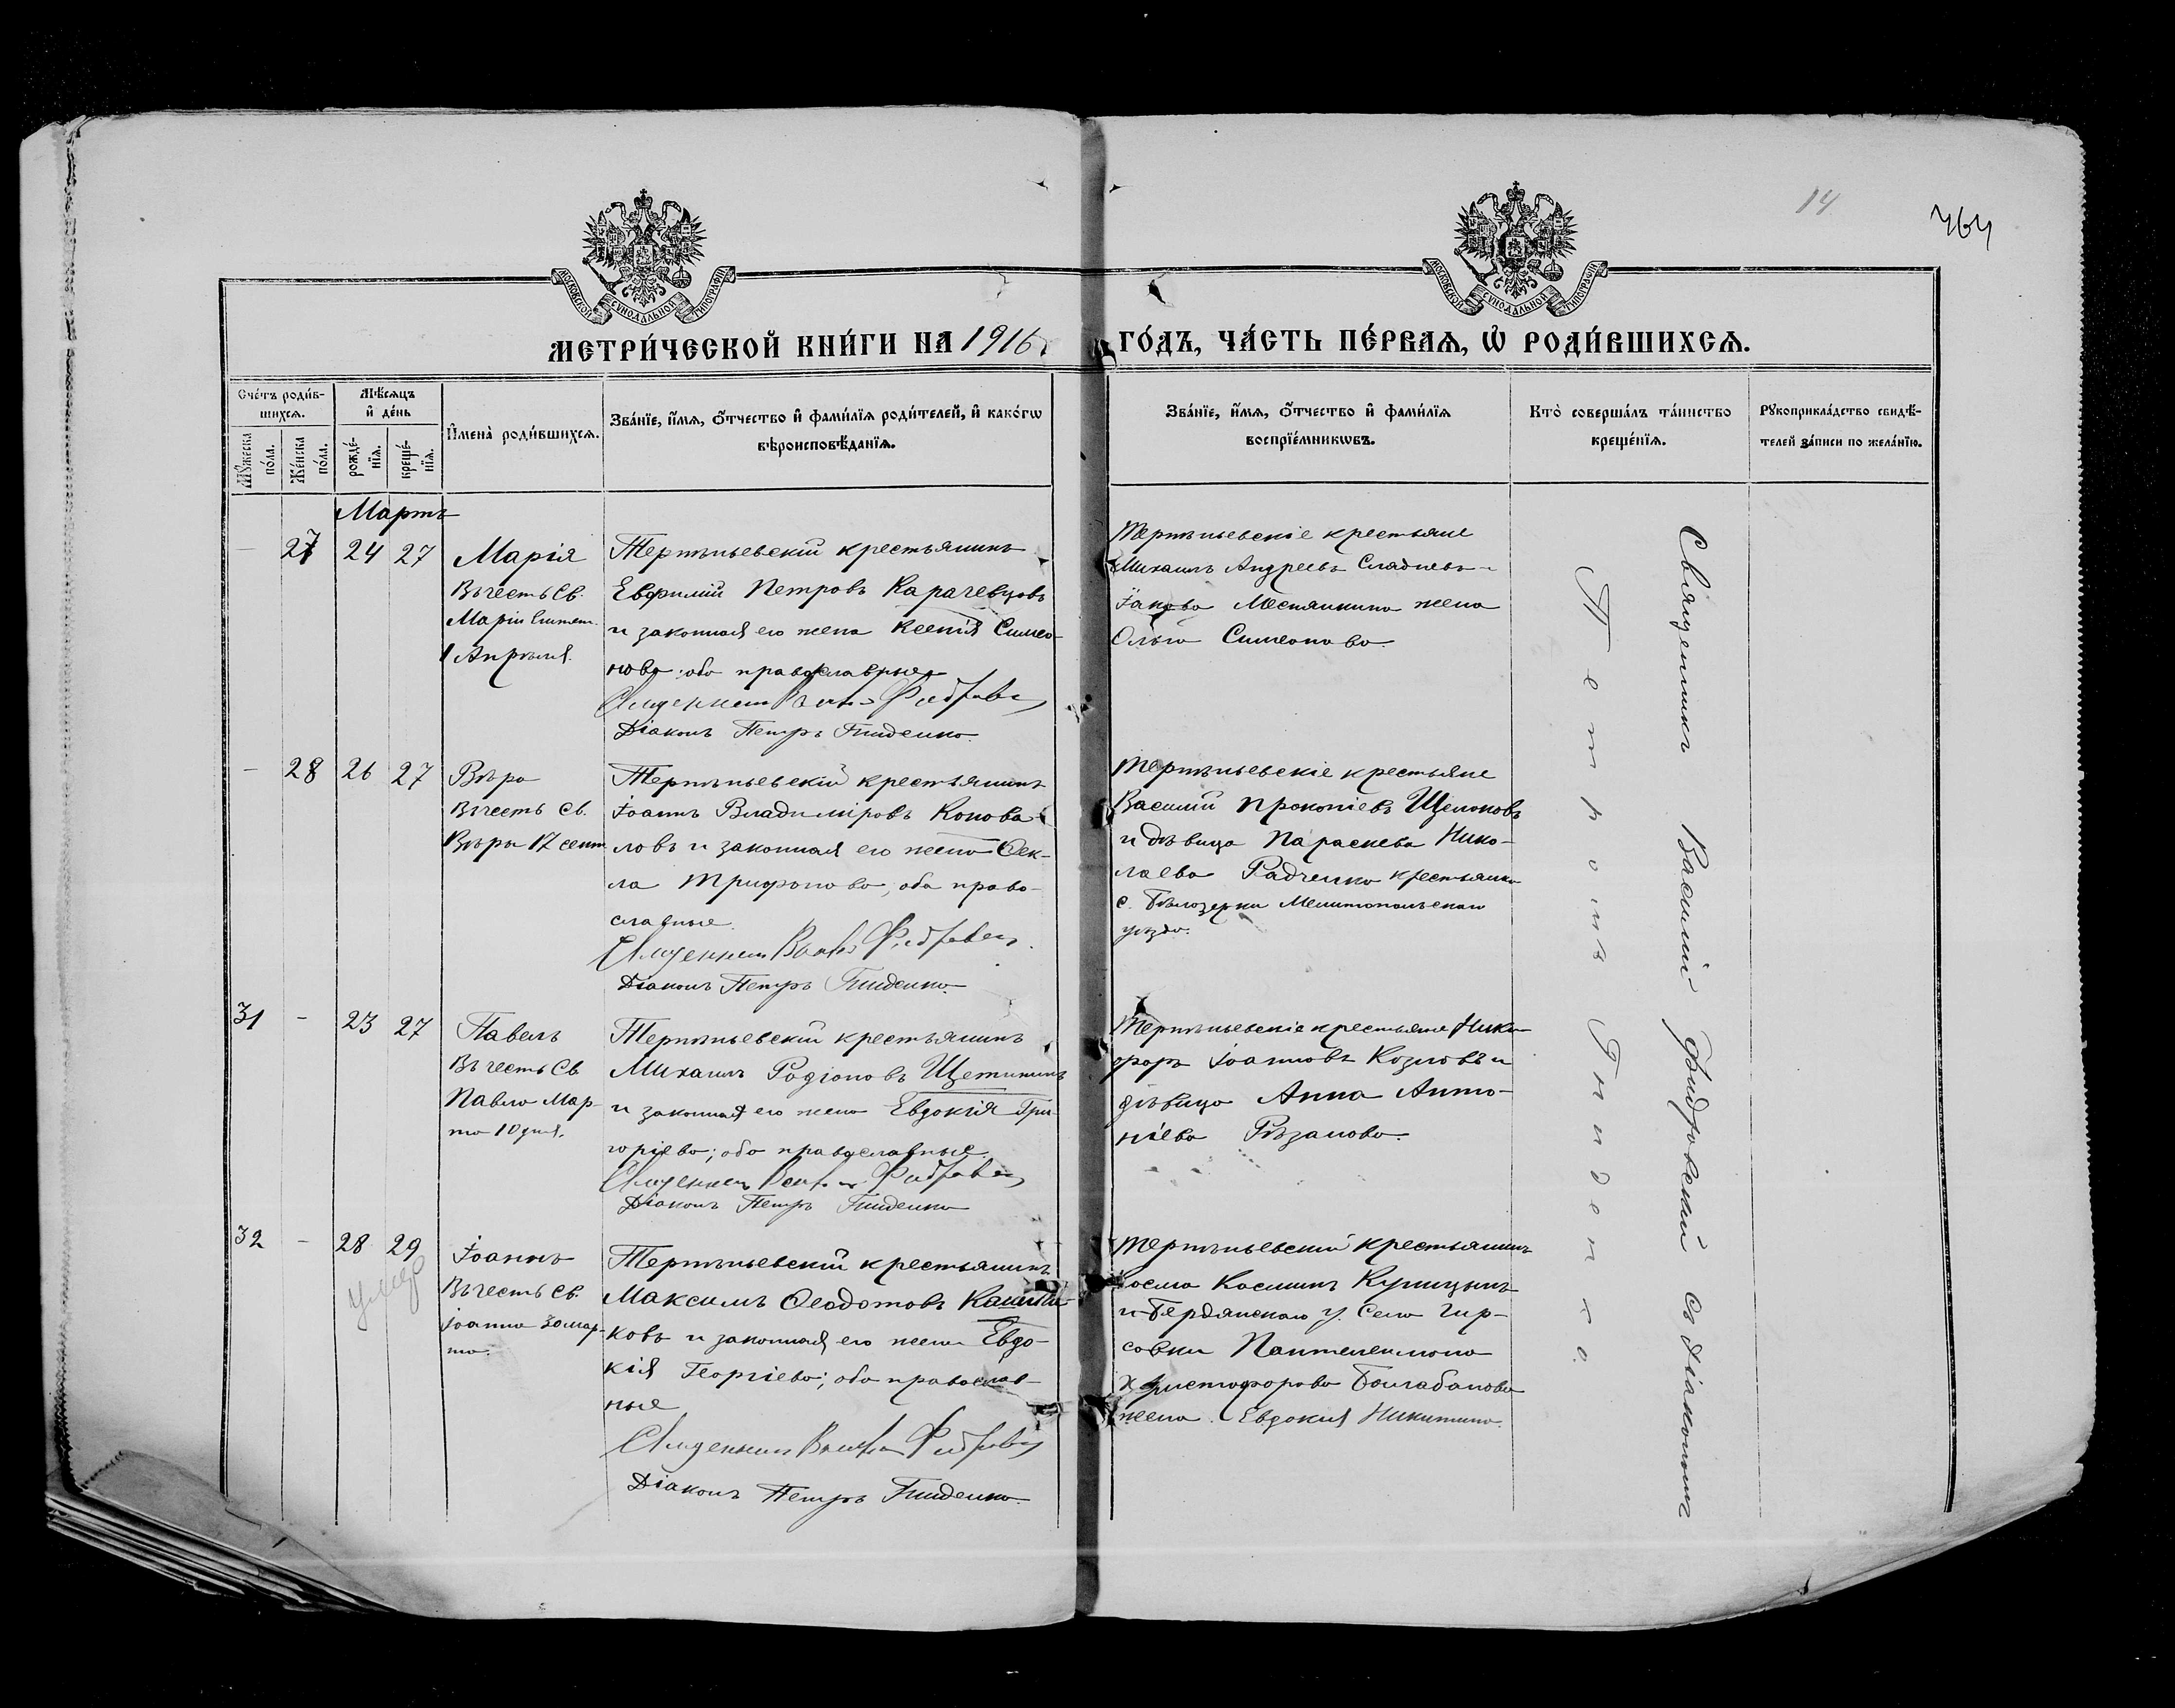 14
764
МОСКОВСКОЙ СУНОДАЛЬНОЙ ТИПОГРАФІИ
МОСКОВСКОЙ СУНОДАЛЬНОЙ ТИПОГРАФІИ
МЕТРИ́ЧЕСКОЙ КНИ́ГИ НА 1916 г. ГО́ДЪ, ЧА́СТЬ ПЕ́РВАѦ, Ѡ҆ РОДИ́ВШИХСѦ.
Сче́тъ роди́в-
шихсѧ.
Мꙋ́жеска по́ла.
Же́нска по́ла.
Мѣ́сѧцъ
и҆ де́нь
рожде́-
нїѧ.
креще́-
нїѧ.
И҆мена̀ роди́вшихсѧ.
Зва́нїе, и҆́мѧ, ѻ҆́тчество и҆ фами́лїѧ роди́телей, и҆ како́гѡ
вѣроисповѣ́данїѧ.
Зва́нїе, и҆́мѧ, ѻ҆́тчество и҆ фами́лїѧ
воспрїе́мникѡвъ.
Кто̀ соверша́лъ та́инство
креще́нїѧ.
Рꙋкоприкла́дство свидѣ́-
телей за́писи по жела́нїю.
Мартъ
- 27 24 27
Марія
Въ честь Св.
Маріи Египет.
1 Апрѣля.
Терпѣньевскій крестьянинъ
Евфимій Петровъ Карачевцовъ
и законная его жена Ксенія Симео-
нова; оба православные
Священникъ Василій Фидровскій
Діаконъ Петръ Гниденко.
Терпѣньевскіе крестьяне
Михаилъ Андреевъ Сладневъ
Іакова Местянкина жена
Ольга Симеонова.
- 28 26 27
Вѣра
Въ честь Св.
Вѣры 17 сент.
Терпѣньевскій крестьянинъ
Іоаннъ Владиміровъ Конова-
ловъ и законная его жена Ѳек-
ла Трифонова, оба право-
славные.
Священникъ Василій Фидровскій
Діаконъ Петръ Гниденко.
Терпѣньевскіе крестьяне
Василій Прокопіевъ Щелоковъ
и дѣвица Параскева Нико-
лаева Радченко крестьянка
с. Бѣлозерки Мелитопольскаго
уѣзда.
31 - 23 27
Павелъ
Въ честь Св.
Павла Мар-
та 10 дня.
Терпѣньевскій крестьянинъ
Михаилъ Родіоновъ Щетининъ
и законная его жена Евдокія Гри-
горіева; оба православные.
Священникъ Василій Фидровскій
Діаконъ Петръ Гниденко
Терпѣньевскіе крестьяне Ники-
форъ Іоанновъ Козловъ и
дѣвица Анна Анто-
ніева Рѣзанова.
32 - 28 29
умер
Іоаннъ
Въ честь Св.
Іоанна 30 мар-
та.
Терпѣньевскій крестьянинъ
Максимъ Ѳеодотовъ
ковъ и законная его жена Евдо-
кія Георгіева; оба православ-
ные
Священникъ Василій Фидровскій
Діаконъ Петръ Гниденко.
Терпѣньевскій крестьянинъ
Косма Косминъ Купицынъ
и Бердянскаго у. села Гир-
совки Пантелеимона
Христофорова Балабанова
жена Евдокія Никитина.
Священникъ Василій Фидровскій съ діакономъ
Петромъ Гниденко.